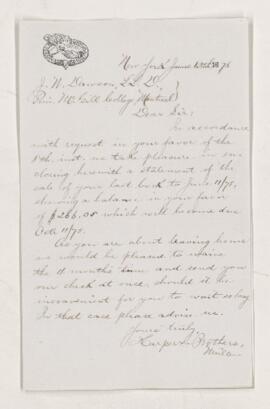 New York, June 13th 1878
J. W. Dawson, LL. D.
Prin. McGill College Montreal
Dear Sir:
In accordance
with request in your favor of the
8th. inst. we take pleasure in en-
closing herewith a statement of the
sale of your last book to June 11/78,
showing a balance in your favor
of $266.05 which will become due
Oct 11/78.
As you are about leaving home
we would be pleased to waive
the 4 months time and send you
our check at once, should it be
inconvenient for you to wait so long
In that case please advise us.
Yours truly,
Harper & Brothers,